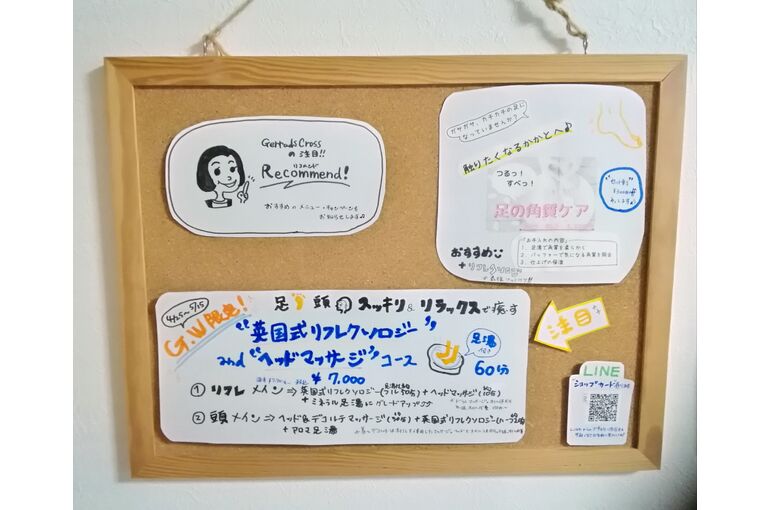 の注目!!
リコメンド
Recommend!
おすすめのメニュー・キャンペーンを
お知らせします♪
ガサガサ、カチカチの足に
なっていませんか?
触りたくなるかかとへ♪
つるっ!
すべっ!
足の角質ケア
『お手入れの内容』
1. 足湯で角質を柔らかく
2. バッファーで気になる角質を除去
3. 仕上げの保湿
おすすめ
+リフレクソロジー
4/25~5/15
G.W限定!
足 頭 スッキリ&リラックスで癒す
"英国式リフレクソロジー"
and "ヘッドマッサージ" コース
足湯
付き
60分
¥7,000
① リフレ メイン ⇒ 英国式リフレクソロジー(フル50分)+ヘッドマッサージ(10分)
+ミネラル足湯にグレードアップ
② 頭 メイン ⇒ ヘッド&デコルテマッサージ(30分)+英国式リフレクソロジー
+アロマ足湯
注目
LINE
ショップカード